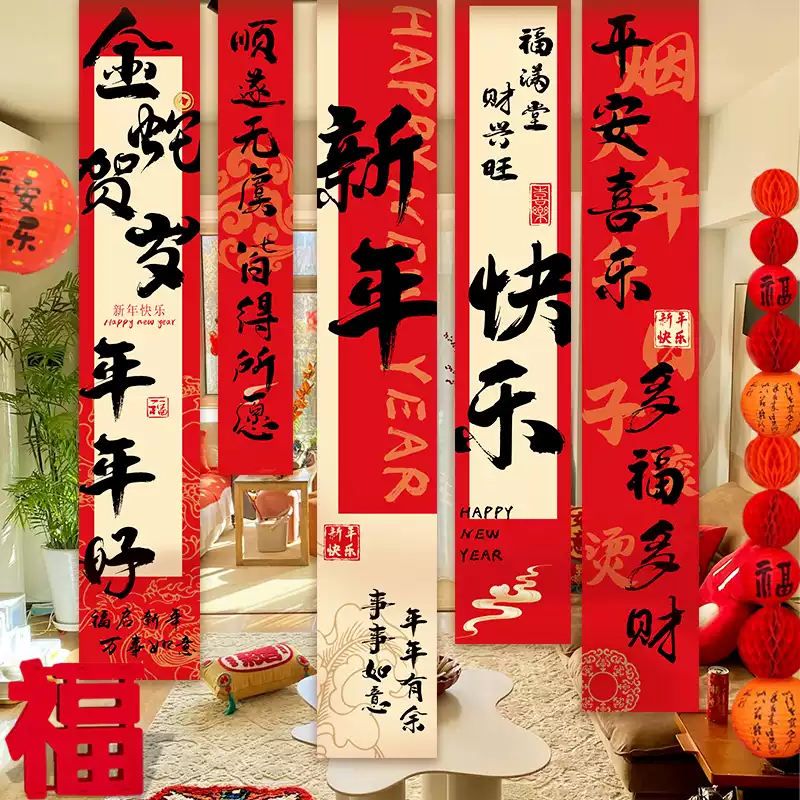 金蛇贺岁
新年快乐
Happy new year
年年好
福
福启新年
万事如意
顺遂无虞
皆得所愿
HAPPY NEW YEAR
新年
新年
快乐
年年有余
事事如意
福满堂
财兴旺
喜樂
快乐
HAPPY
NEW
YEAR
平安喜乐
烟
年
新年
快乐
多福多财
日子滚烫
平安
乐
福
福
福